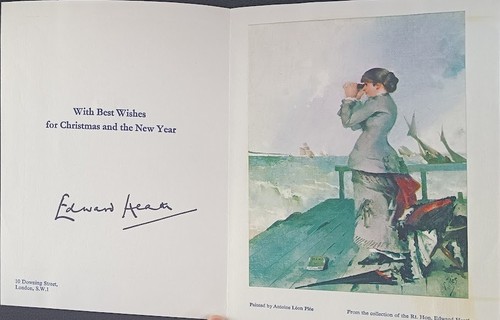 With Best Wishes
for Christmas and the New Year
Edward Heath
10 Downing Street,
London, S.W.1
Painted by Antoine Léon Plée
From the collection of the Rt. Hon. Edward